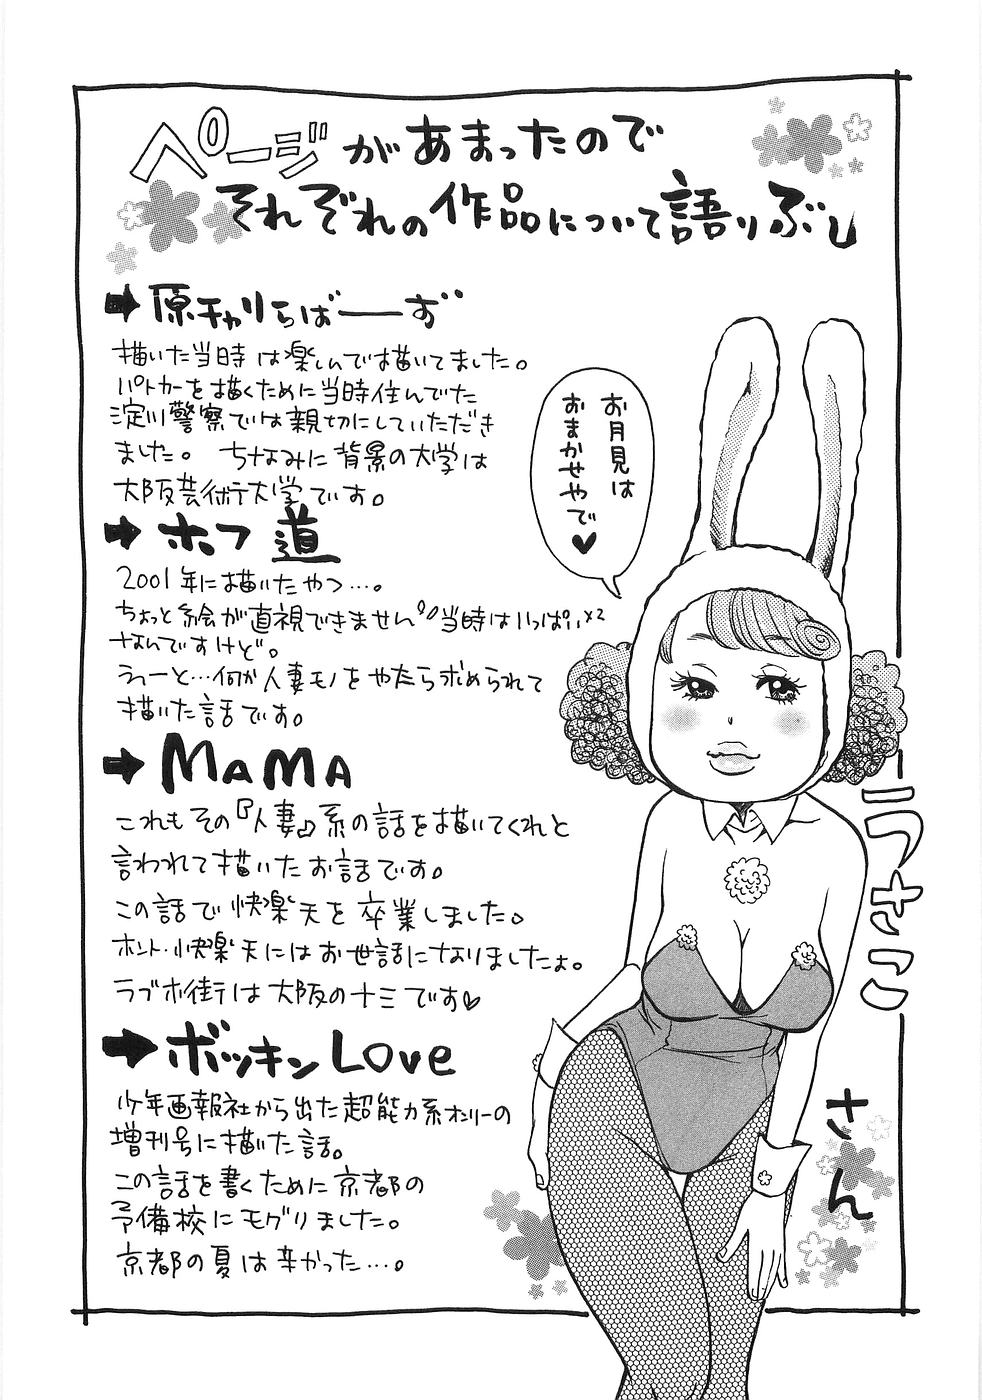 ページがあまったので
それぞれの作品について語りぶし
➡原チャリらばーーず
描いた当時は楽しんで描いてました。
パトカーを描くために当時住んでた
淀川警察では親切にしていただき
ました。 ちなみに背景の大学は
大阪芸術大学です。
➡ホフ道
2001年に描いたやつ…。
ちょっと絵が直視できません 当時はいっぱい×2
なんですけど。
うーと…何か人妻モノをやたら求められて
描いた話です。
➡MAMA
これもその『人妻』系の話を描いてくれと
言われて描いたお話です。
この話で快楽天を卒業しました。
ホント快楽天にはお世話になりましたよ。
ラブホ街は大阪の十三です♡
➡ボッキンLove
少年画報社から出た超能力系オンリーの
増刊号に描いた話。
この話を書くために京都の
予備校にモグりました。
京都の夏は辛かった…。
お月見は
おまかせやで♥
ラさこ
さん